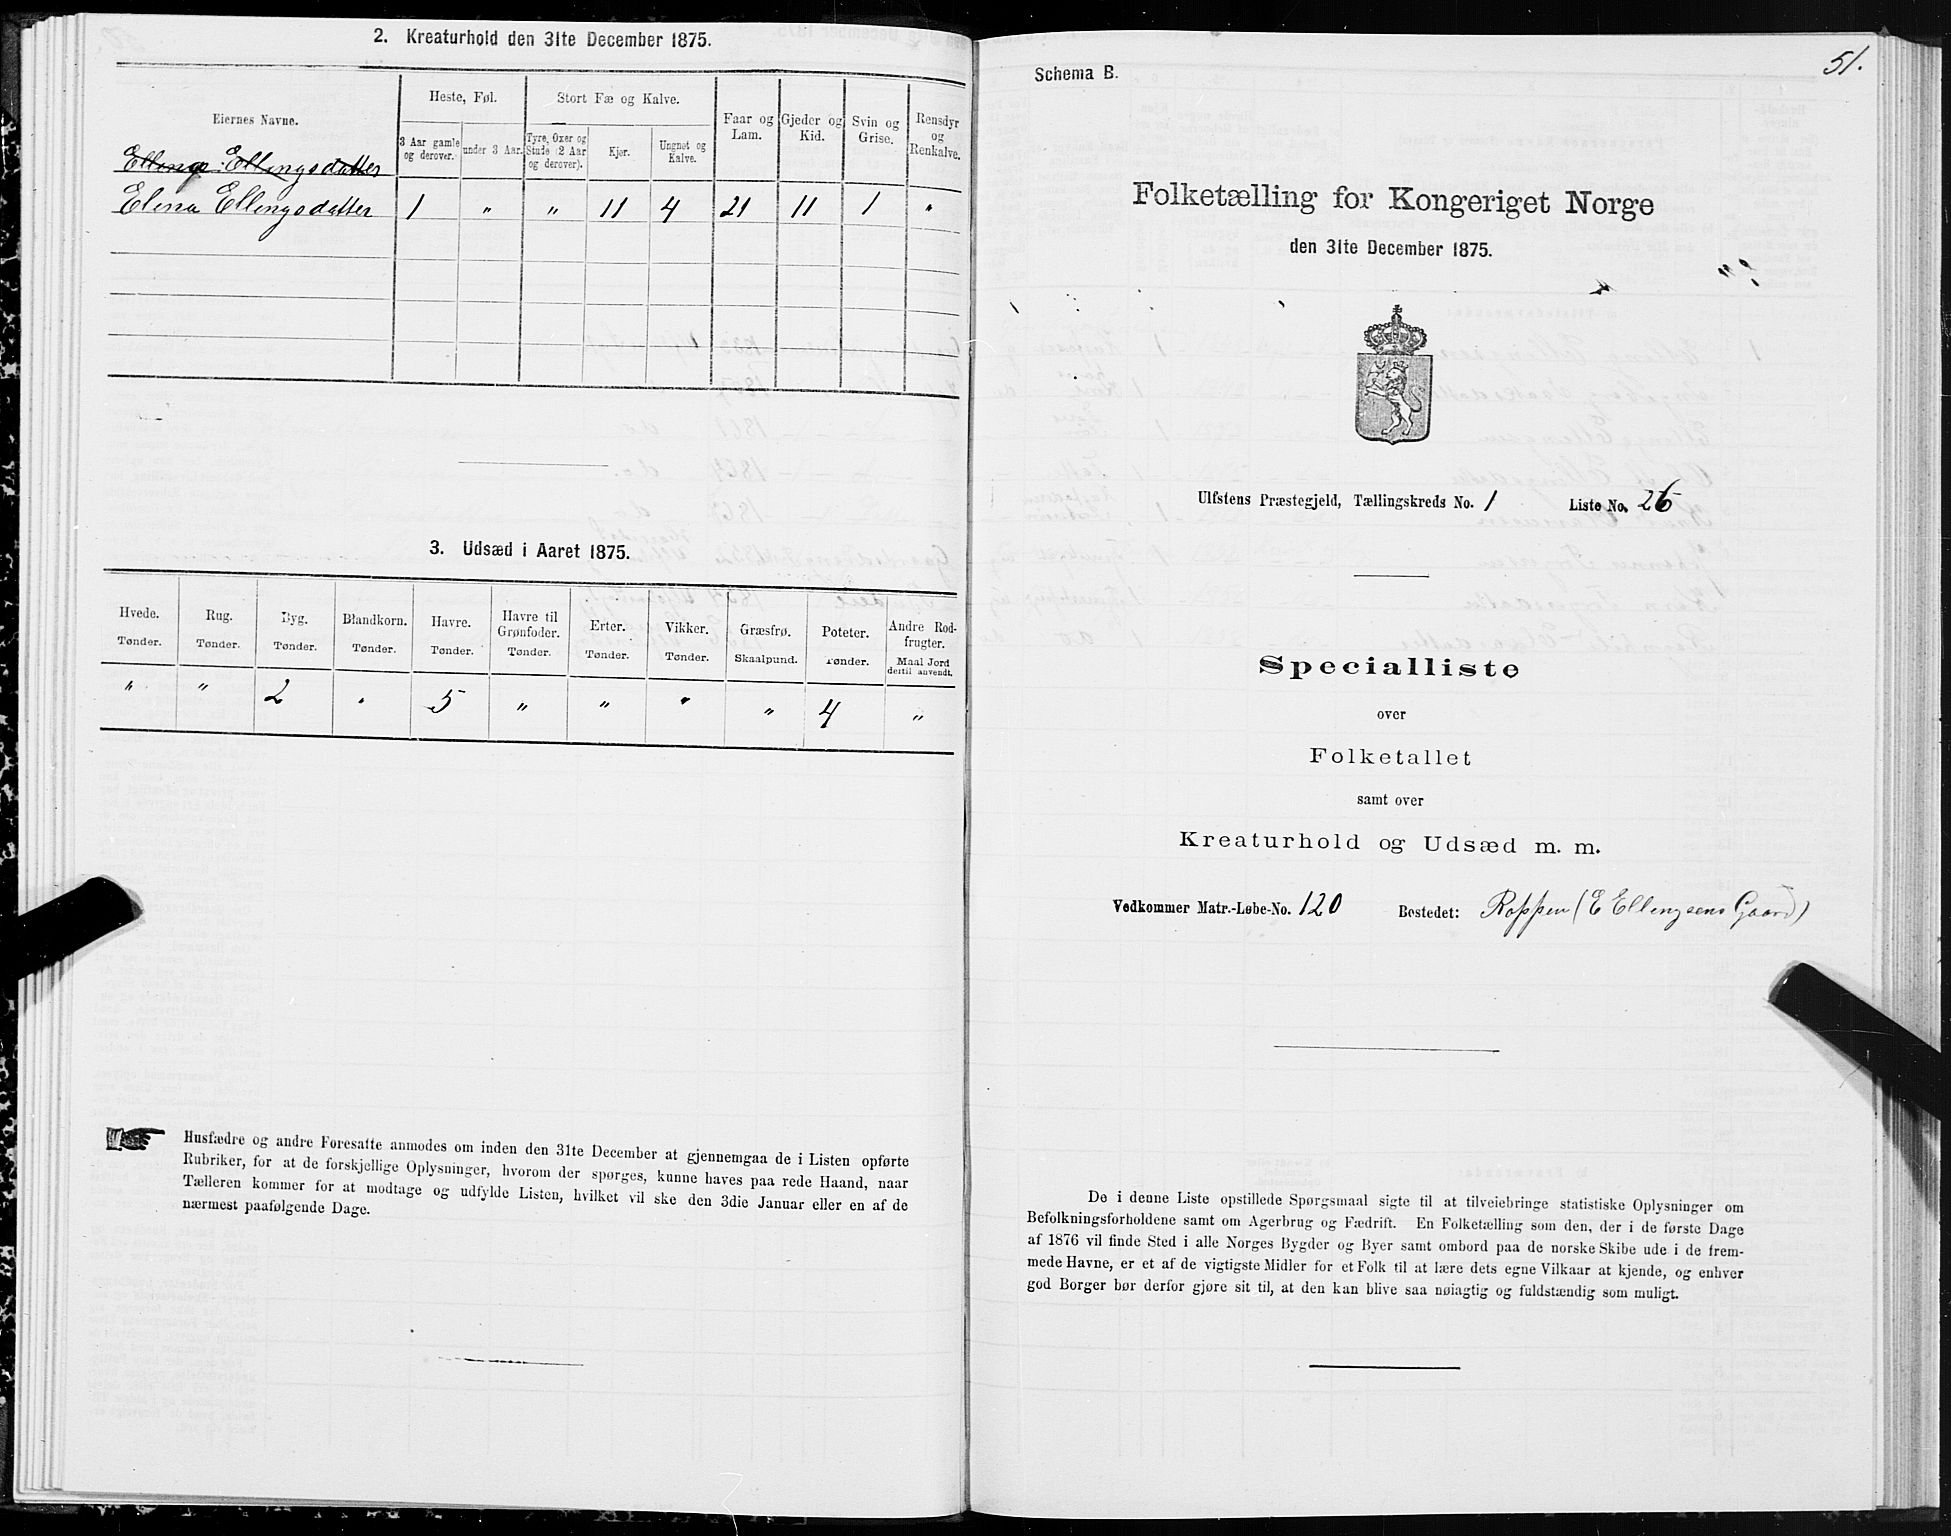 2. Kreaturhold den 31te December 1875.
Eiernes Navne.
Heste, Føl.
3 Aar gamle og derover.
under 3 Aar.
Stort Fæ og Kalve.
Tyre, Oxer og Stude (2 Aar og derover).
Kjør.
Ungnet og Kalve.
Faar og Lam.
Gjeder og Kid.
Svin og Grise.
Rensdyr og Renkalve.
Ellingsdatter
Elena Ellingsdatter 1 " " 11 4 21 11 1 "
3. Udsæd i Aaret 1875.
Hvede. Tønder.
Rug. Tønder.
Byg. Tønder.
Blandkorn. Tønder.
Havre. Tønder.
Havre til Grønfoder. Tønder.
Erter. Tønder.
Vikker. Tønder.
Græsfrø. Skaalpund.
Poteter. Tønder.
Andre Rodfrugter. Maal Jord dertil anvendt.
" " 2 " 5 " " " " 4 "
Husfædre og andre Foresatte anmodes om inden den 31te December at gjennemgaa de i Listen opførte
Rubriker, for at de forskjellige Oplysninger, hvorom der spørges, kunne haves paa rede Haand, naar
Tælleren kommer for at modtage og udfylde Listen, hvilket vil ske den 3die Januar eller en af de
nærmest paafølgende Dage.
51.
Schema B.
Folketælling for Kongeriget Norge
den 31te December 1875.
Ulfstens Præstegjeld, Tællingskreds No. 1 Liste No. 26
Specialliste
over
Folketallet
samt over
Kreaturhold og Udsæd m. m.
Vedkommer Matr.-Løbe-No. 120 Bostedet: Roppen (E Ellingsens Gaard)
De i denne Liste opstillede Spørgsmaal sigte til at tilveiebringe statistiske Oplysninger om
Befolkningsforholdene samt om Agerbrug og Fædrift. En Folketælling som den, der i de første Dage
af 1876 vil finde Sted i alle Norges Bygder og Byer samt ombord paa de norske Skibe ude i de frem-
mede Havne, er et af de vigtigste Midler for et Folk til at lære dets egne Vilkaar at kjende, og enhver
god Borger bør derfor gjøre sit til, at den kan blive saa nøiagtig og fuldstændig som muligt.